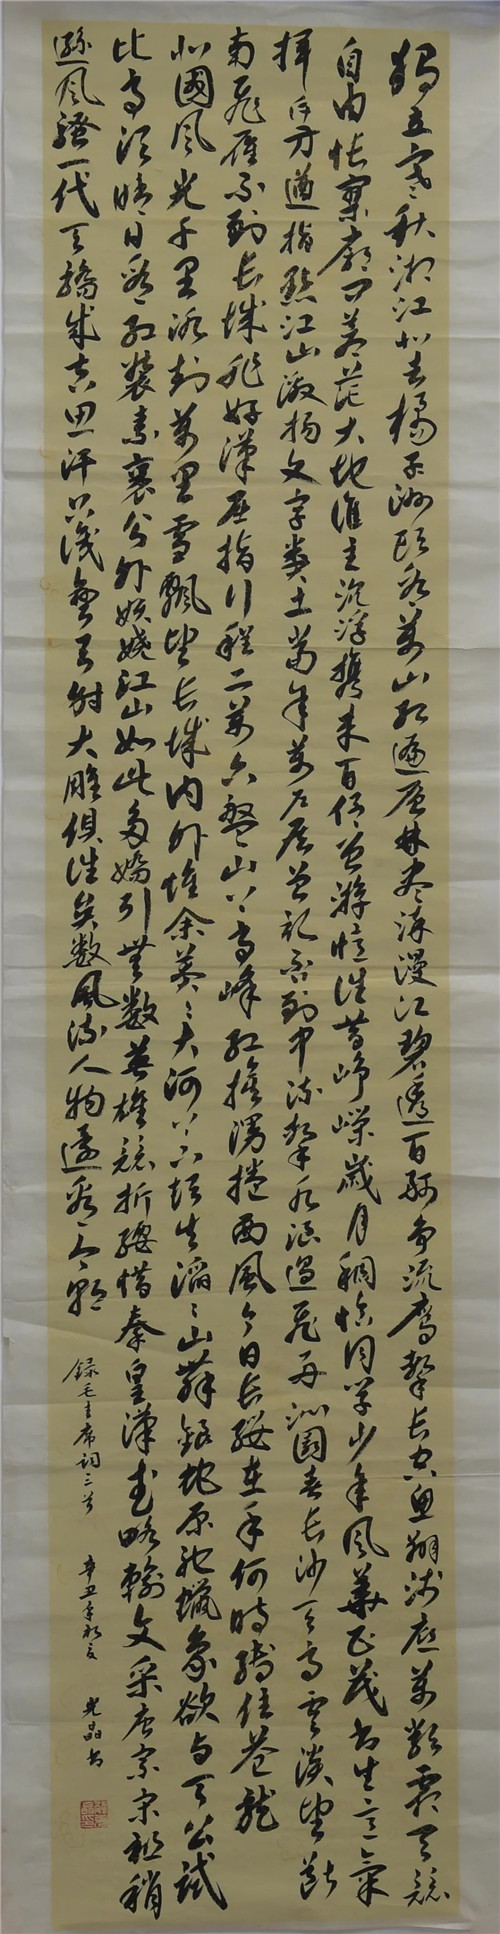 独立寒秋湘江北去橘子洲头看万山红遍层林尽染漫江碧透百舸争流鹰击长空鱼翔浅底万类霜天竞
自由怅寥廓问苍茫大地谁主沉浮携来百侣曾游忆往昔峥嵘岁月稠恰同学少年风华正茂书生意气
挥斥方遒指点江山激扬文字粪土当年万户侯曾记否到中流击水浪遏飞舟沁园春长沙天高云淡望断
南飞雁不到长城非好汉屈指行程二万六盘山上高峰红旗漫捲西风今日长缨在手何时缚住苍龙
北国风光千里冰封万里雪飘望长城内外惟余莽々大河上下顿失滔々山舞银蛇原驰蜡象欲与天公试
比高须晴日看红装素裹分外妖娆江山如此多娇引无数英雄竞折腰惜秦皇汉武略输文采唐宗宋祖稍
逊风骚一代天骄成吉思汗只识弯弓射大雕俱往矣数风流人物还看今朝
录毛主席词三首
辛丑年初夏
光晶书